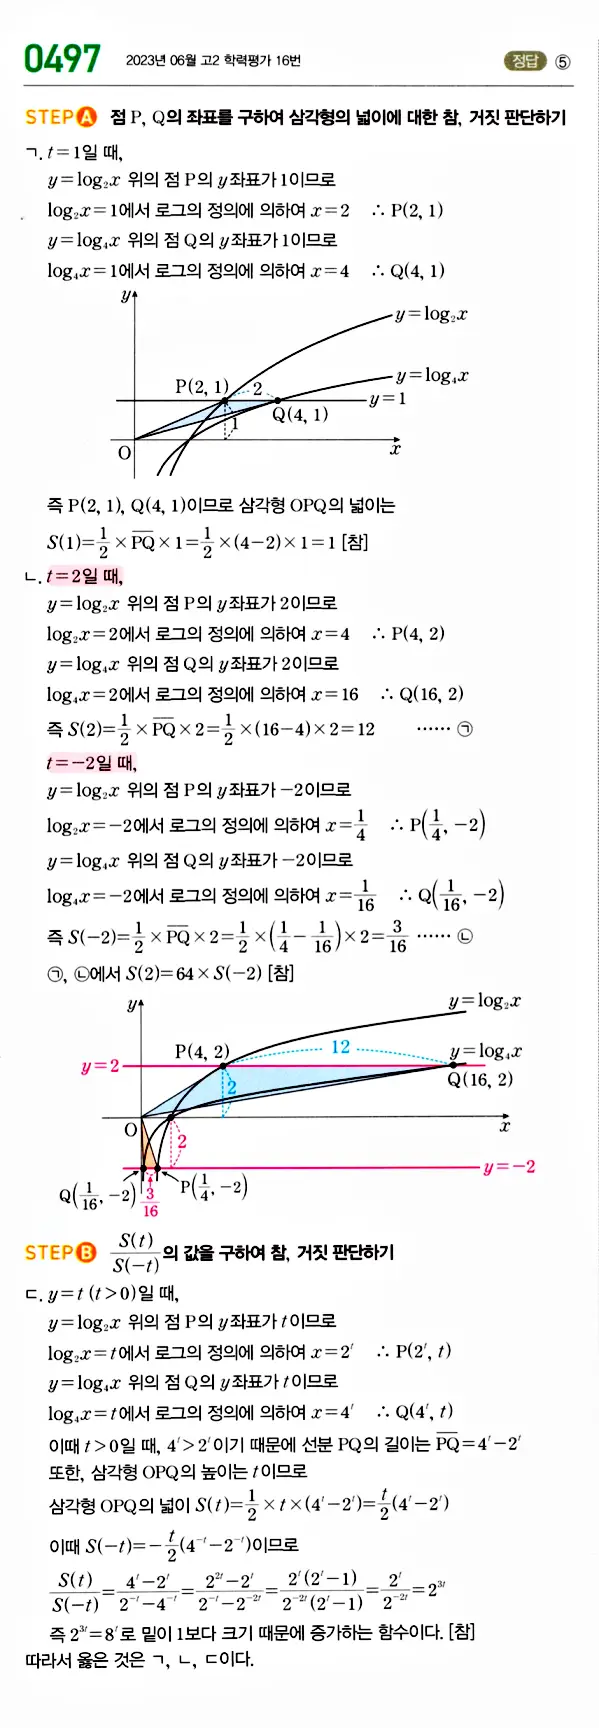 0497 2023년 06월 고2 학력평가 16번 정답 ⑤
STEP A 점 P, Q의 좌표를 구하여 삼각형의 넓이에 대한 참, 거짓 판단하기
ㄱ. t=1일 때,
y=log₂x 위의 점 P의 y좌표가 1이므로
log₂x=1에서 로그의 정의에 의하여 x=2 ∴ P(2, 1)
y=log₄x 위의 점 Q의 y좌표가 1이므로
log₄x=1에서 로그의 정의에 의하여 x=4 ∴ Q(4, 1)
y
y=log₂x
P(2, 1) 2
y=log₄x
y=1
1 Q(4, 1)
O x
즉 P(2, 1), Q(4, 1)이므로 삼각형 OPQ의 넓이는
S(1)=1/2×PQ×1=1/2×(4-2)×1=1 [참]
ㄴ. t=2일 때,
y=log₂x 위의 점 P의 y좌표가 2이므로
log₂x=2에서 로그의 정의에 의하여 x=4 ∴ P(4, 2)
y=log₄x 위의 점 Q의 y좌표가 2이므로
log₄x=2에서 로그의 정의에 의하여 x=16 ∴ Q(16, 2)
즉 S(2)=1/2×PQ×2=1/2×(16-4)×2=12 …… ㉠
t=-2일 때,
y=log₂x 위의 점 P의 y좌표가 -2이므로
log₂x=-2에서 로그의 정의에 의하여 x=1/4 ∴ P(1/4, -2)
y=log₄x 위의 점 Q의 y좌표가 -2이므로
log₄x=-2에서 로그의 정의에 의하여 x=1/16 ∴ Q(1/16, -2)
즉 S(-2)=1/2×PQ×2=1/2×(1/4-1/16)×2=3/16 …… ㉡
㉠, ㉡에서 S(2)=64×S(-2) [참]
y y=log₂x
P(4, 2) 12 y=log₄x
y=2
2 Q(16, 2)
O x
2
y=-2
Q(1/16, -2) 3/16 P(1/4, -2)
STEP B S(t)/S(-t)의 값을 구하여 참, 거짓 판단하기
ㄷ. y=t (t>0)일 때,
y=log₂x 위의 점 P의 y좌표가 t이므로
log₂x=t에서 로그의 정의에 의하여 x=2ᵗ ∴ P(2ᵗ, t)
y=log₄x 위의 점 Q의 y좌표가 t이므로
log₄x=t에서 로그의 정의에 의하여 x=4ᵗ ∴ Q(4ᵗ, t)
이때 t>0일 때, 4ᵗ>2ᵗ이기 때문에 선분 PQ의 길이는 PQ=4ᵗ-2ᵗ
또한, 삼각형 OPQ의 높이는 t이므로
삼각형 OPQ의 넓이 S(t)=1/2×t×(4ᵗ-2ᵗ)=t/2(4ᵗ-2ᵗ)
이때 S(-t)=-t/2(4⁻ᵗ-2⁻ᵗ)이므로
S(t)/S(-t)=(4ᵗ-2ᵗ)/(2⁻ᵗ-4⁻ᵗ)=(2²ᵗ-2ᵗ)/(2⁻ᵗ-2⁻²ᵗ)=2ᵗ(2ᵗ-1)/2⁻²ᵗ(2ᵗ-1)=2ᵗ/2⁻²ᵗ=2³ᵗ
즉 2³ᵗ=8ᵗ로 밑이 1보다 크기 때문에 증가하는 함수이다. [참]
따라서 옳은 것은 ㄱ, ㄴ, ㄷ이다.